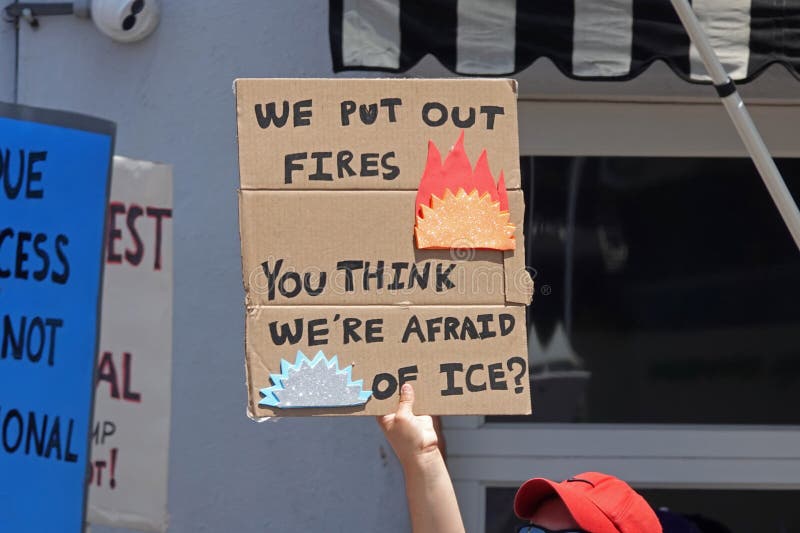 WE PUT OUT
FIRES
YOU THINK
WE'RE AFRAID
OF ICE?
CESS
NOT
ONAL
EST
AL
MP
OT!
dreamstime